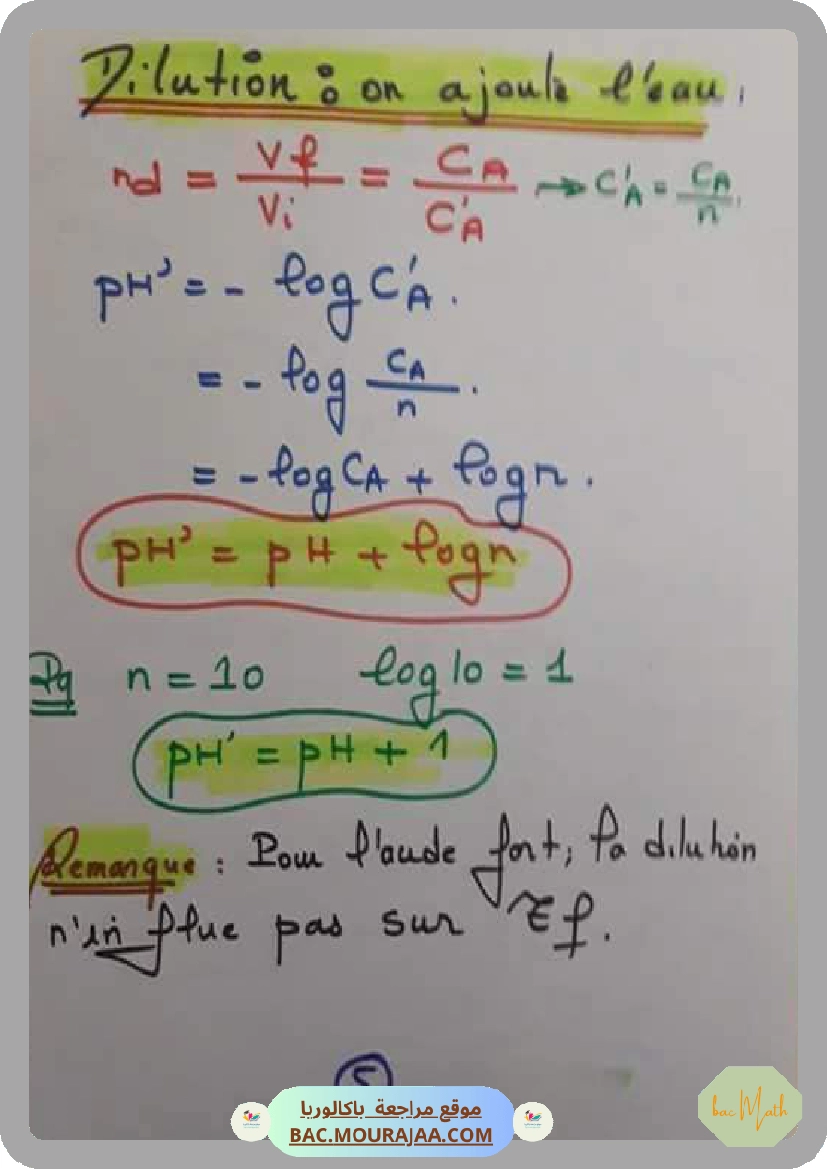 Dilution : on ajoute l'eau.
nd = Vf / Vi = CA / C'A → C'A = CA / n.
pH' = - log C'A.
= - log CA / n.
= - log CA + log n.
pH' = pH + log n
n = 10 log 10 = 1
pH' = pH + 1
Remarque : Pour l'acide fort, la dilution
n'influe pas sur τf.
5
موقع مراجعة باكالوريا
BAC.MOURAJAA.COM
bac Math